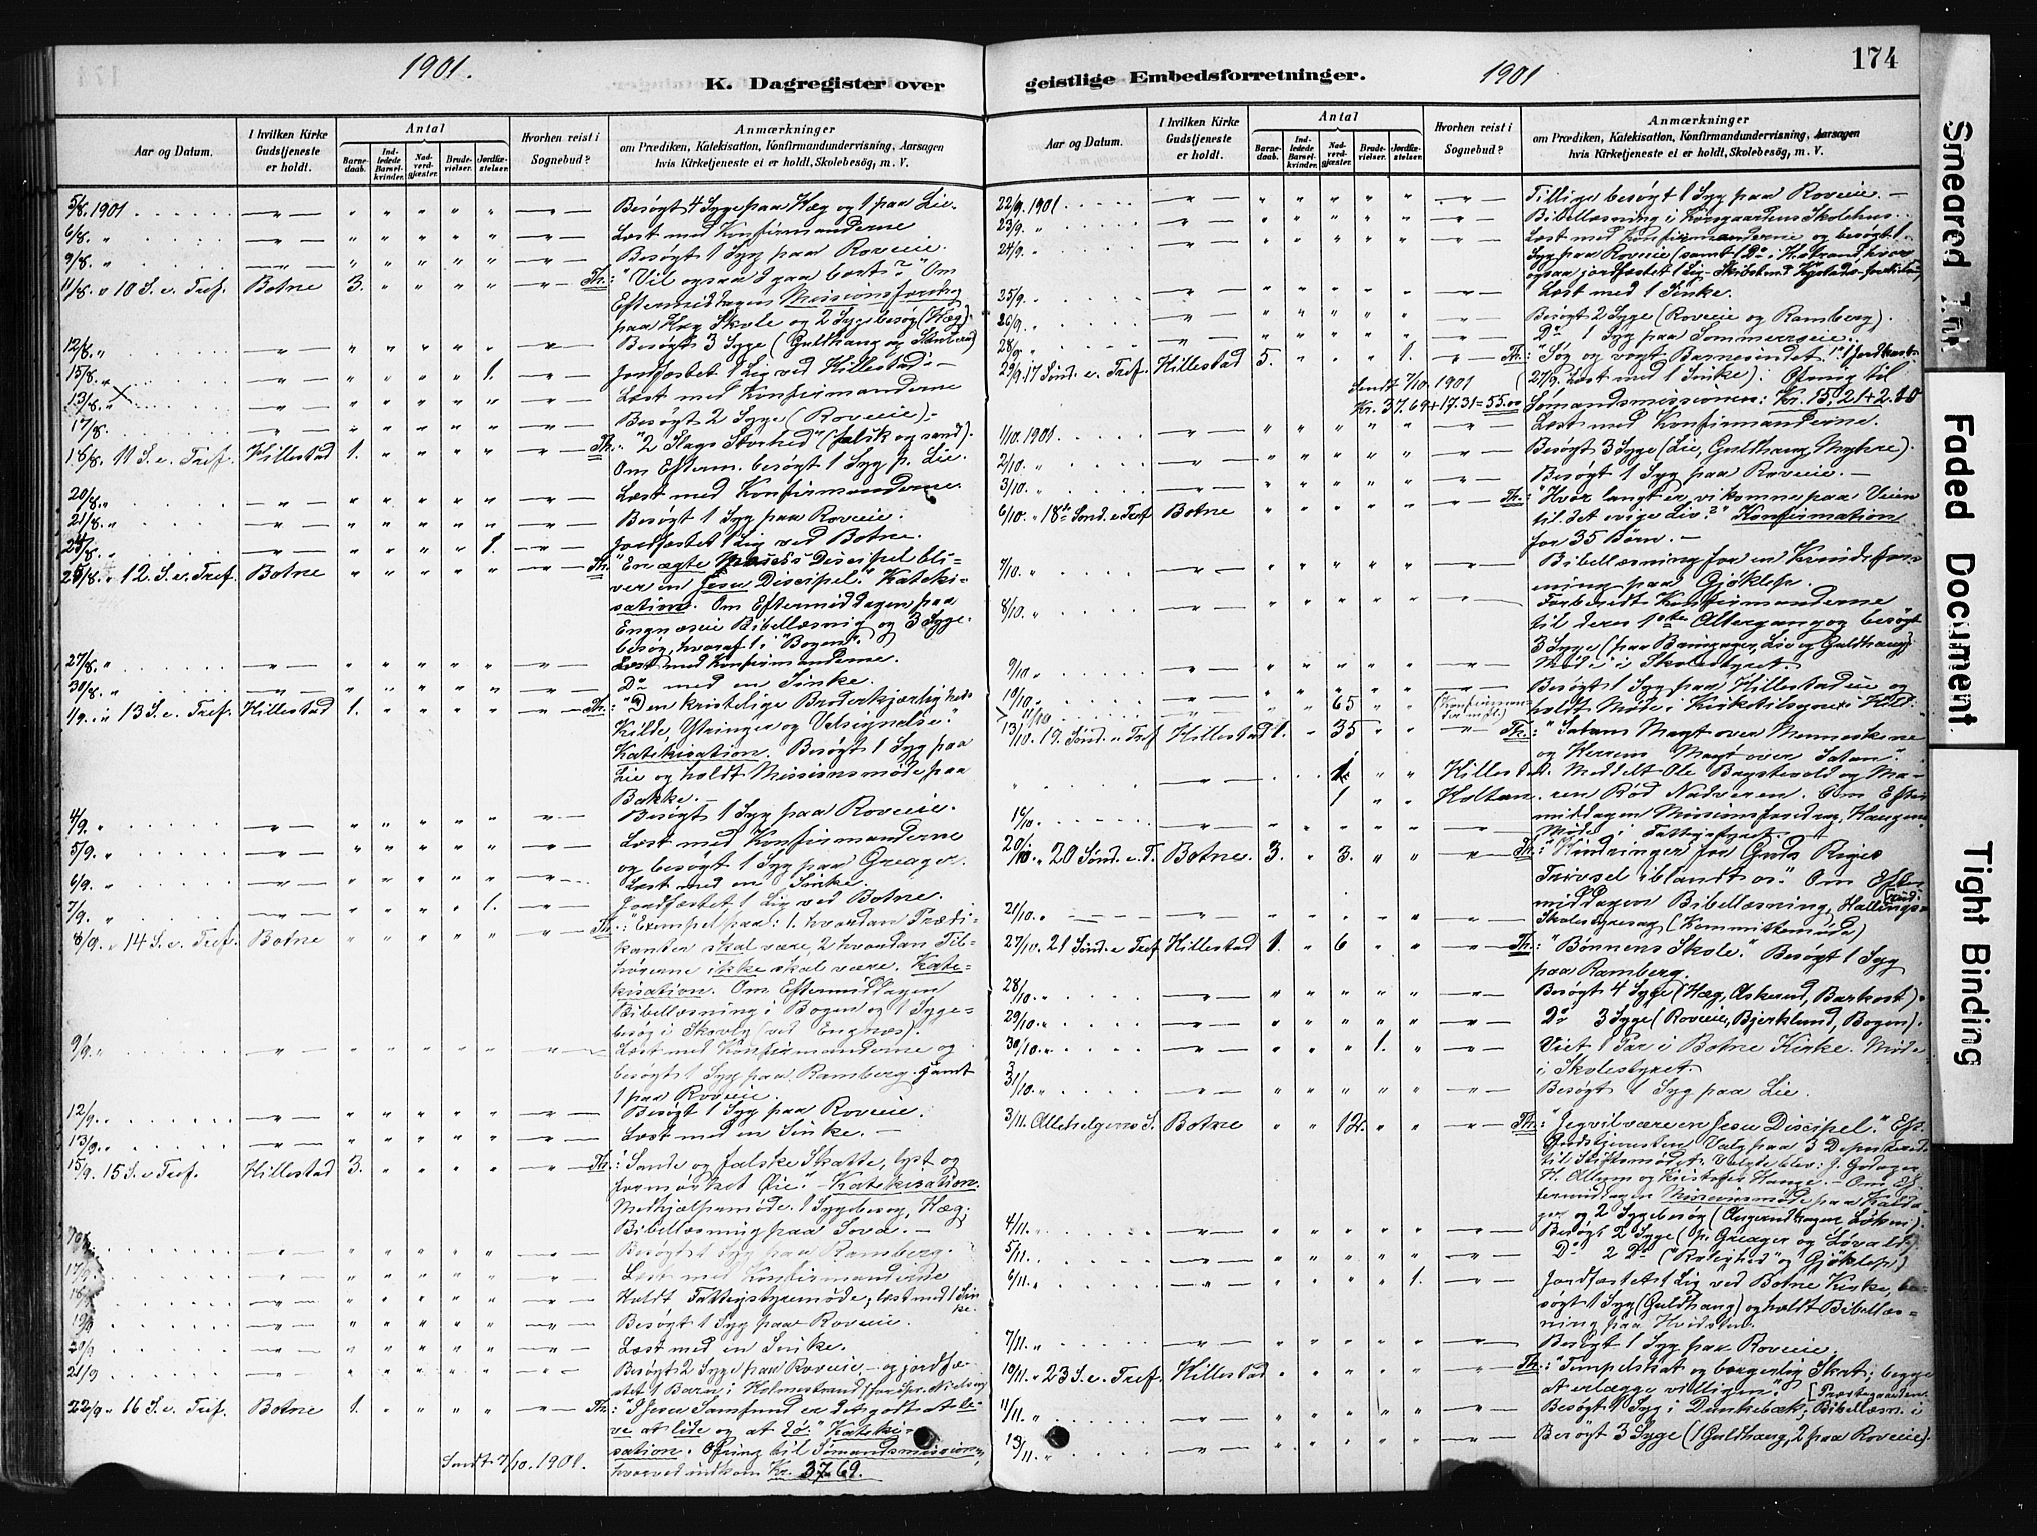 1901.
K. Dagregister over
Aar og Datum.
I hvilken Kirke Gudstjeneste er holdt.
Antal
Barnedaab.
Indledede Barselkvinder.
Nadverdgjester.
Brudevielser.
Jordfæstelser.
Hvorhen reist i Sognebud?
Anmærkninger
om Prædiken, Katekisation, Konfirmandundervisning, Aarsagen
hvis Kirketjeneste ei er holdt, Skolebesøg, m. V.
5/8. 1901 Besøgt 4 Syge paa Hæg og 1 paa Lie.
6/8. " Læst med Konfirmanderne.
9/8. " Besøgt 1 Syg paa Roveie.
11/8. " 10 S. e. Tref. Botne 3. Th.: "Vil ogsaa I gaa bort?" Om
Eftermiddagen Missionsforedrag
paa Hæg Skole og 2 Sygebesøg (Hæg).
12/8. " Besøgt 3 Syge
15/8. " 1. Jordfæstet 1 Lig ved Hillestad.
13/8. " Læst med Konfirmanderne
17/8. Besøgt 2 Syge (Roveie).
18/8. 11 S. e. Tref. Hillestad 1. Th.: "2 Slags Storhed" (falsk og sand).
Om Efterm. besøgt 1 Syg p. Lie.
20/8. " Læst med Konfirmanderne.
21/8. " Besøgt 1 Syg paa Roveie.
1. Jordfæstet 1 Lig ved Botne.
25/8. " 12 S. e. Tref. Botne Th. "En ægte Discipel bli-
ver en Jesu Discipel." Kateki-
sation. Om Eftermiddagen paa
Engnæseie Bibellæsning og 3 Syge-
besøg, hvoraf 1 i "Bogen".
27/8. " Læst med Konfirmanderne.
30/8. " Do med en Sinke.
1/9. " 13 S. e. Tref. Hillestad 1. Th.: "Den kristelige Broderkjærligheds
Kilde, Ytringer og Velsignelse."
Katekisation. Besøgt 1 Syg paa
Lie og holdt Missionsmøde paa
Bakke.
4/9. " Besøgt 1 Syg paa Roveie.
5/9. " Læst med Konfirmanderne
og besøgt 1 Syg paa Greager.
6/9. " Læst med en Sinke.
7/9. " 1. Jordfæstet 1 Lig ved Botne.
8/9. " 14 S. e. Tref. Botne Th.: "Exempel paa: 1. hvordan Prædi-
kanter skal være, 2 hvordan Til-
hørerne ikke skal være. Kate-
kisation. Om Eftermiddagen
Bibellæsning i Bogen og 1 Syge-
besøg i Skovly (ved Engnæs).
9/9. " Læst med Konfirmanderne og
besøgt 1 Syg paa Ramberg samt
1 paa Roveie.
12/9. " Besøgt 1 Syg paa Roveie.
13/9. " Læst med en Sinke.
15/9. 15 S. e. Tref. Hillestad 3. Th.: "Sande og falske Skatte, lyst og
formørket Øie." Katekisation.
Medhjælpermøde. 1 Sygebesøg, Hæg,
Bibellæsning paa Sova.
Besøgt 1 Syg paa Ramberg.
17/9. Læst med Konfirmanderne
18/9 Holdt Fattigstyremøde, læst med 1 Sinke.
19/9 Besøgt 1 Syg paa Roveie.
20/9 Læst med en Sinke.
21/9 Besøgt 2 Syge paa Roveie og jordfæ-
stet 1 Barn i Holmestrand
22/9 " 16 S. e. Tref. Botne 1. Th.: "I Jesu Samfund er det godt at le-
ve at lide og at dø." Kateki-
sation. Ofring til Sømandsmissionen,
Sendt 7/10. 1901. hvorved indkom Kr. 37.69.

174
geistlige Embedsforretninger.
1901
Aar og Datum.
I hvilken Kirke Gudstjeneste er holdt.
Antal
Barnedaab.
Indledede Barselkvinder.
Nadverdgjester.
Brudevielser.
Jordfæstelser.
Hvorhen reist i Sognebud?
Anmærkninger
om Prædiken, Katekisation, Konfirmandundervisning, Aarsagen
hvis Kirketjeneste ei er holdt, Skolebesøg, m. V.
22/9. 1901 Tillige besøgt 1 Syg paa Roveie.
23/9. " Bibellæsning i Skolehus.
24/9. " Læst med Konfirmanderne og besøgt 1
Syg paa Roveie (samt 1 Do i H.strand, hvor
ogsaa jordfæstet 1 Lig
25/9. " Læst med 1 Sinke.
26/9. " Besøgt 2 Syge (Roveie og Ramberg).
28/9 " Do 1 Syg paa Sommerrøeie.
29/9. 17 Sønd. e. Tref. Hillestad 5. 1. Th.: "Søg og vogt Barnesindet!"
(27/9. Læst med 1 Sinke). Ofring til
Sendt 7/10. 1901
Kr. 37.69 + 17.31 = 55.00 Sømandsmissionen: Kr. 15,21 + 2.10
1/10. 1901 Læst med Konfirmanderne.
2/10. " Besøgt 3 Syge (Lie, Guldhaug, Myhre).
3/10. " Besøgt 1 Syg paa Roveie.
6/10. " 18de Sønd. e. Tref Botne Th.: "Hvor langt er vi komne paa Veien
til det evige Liv?" Konfirmation
for 35 Børn.
7/10. " Bibellæsning for en Kvindefor-
ening paa Gjøklep.
8/10. " Forberedt Konfirmanderne
til deres 1ste Altergang og besøgt
3 Syge (paa Bringager, Lie og Guldhaug).
9/10. " Møde i Skolestyret.
10/10. " Besøgt 1 Syg paa Hillestadeie og
65 (Konfirman- holdt Møde i Kirketilsynet i Hild.
13/10. 19. Sønd. e. Tref Hillestad 1. 35 Th.: "Satans Magt over Menneskene
og Herrens Magt over Satan."
1. Hillestad. Meddelt Ole Bagstevold og Ma-
1 Holtan. ren Rød Nadveren. Om Efter-
middagen Missionsforedrag, Haugen.
Møde i Fattigstyret.
20/10. " 20 Sønd. e. T. Botne. 3. 3. Th.: "Hindringer for Guds Riges
Trivsel iblandt os." Om Efter-
middagen Bibellæsning, Hallingsrud.
21/10. " Skolestyresag (Kommittemøde)
27/10. 21 Sønd. e. Tref Hillestad 1. 6 Th.: "Bønnens Skole." Besøgt 1 Syg
paa Ramberg.
28/10. " Besøgt 4 Syge (Hæg, Askerud, Barkost).
29/10. " Do 3 Syge (Roveie, Bjerklund, Bogen).
30/10. " 1. Viet 1 Par i Botne Kirke. Møde
i Skolestyret.
31/10. " Besøgt 1 Syg paa Lie.
3/11. Allehelgens S. Botne 12. Th.: "Jeg vil være en Jesu Discipel." Eft.
Gudstjenesten Valg paa 3 Deputerede
til Stiftsmødet. Valgte blev: J. Godager,
H. Allum og Kristofer Hauge. Om Ef-
termiddagen Missionsmøde paa
og 2 Sygebesøg
4/11. " Besøgt 2 Syge (p. Greager og Løvald).
5/11. " Do 2 Do ("Rolighed" og Gjøklep).
6/11. " 1. Jordfæstet 1 Lig ved Botne Kirke, be-
søgt 1 Syg (Guldhaug) og holdt Bibellæs-
ning paa Hvidsten.
7/11. " Besøgt 1 Syg paa Roveie.
10/11. " 23 S. e. Tref. Hillestad Th.: "Tempelskat og borgerlig Skat; begge
at erlægge villigen." [Præstegaarden.
11/11. " Besøgt 1 Syg i Dunkebæk; Bibellæsn. i
13/11. " Besøgt 3 Syge (1 Guldhaug, 2 paa Roveie).
Smeared Ink
Faded Document
Tight Binding